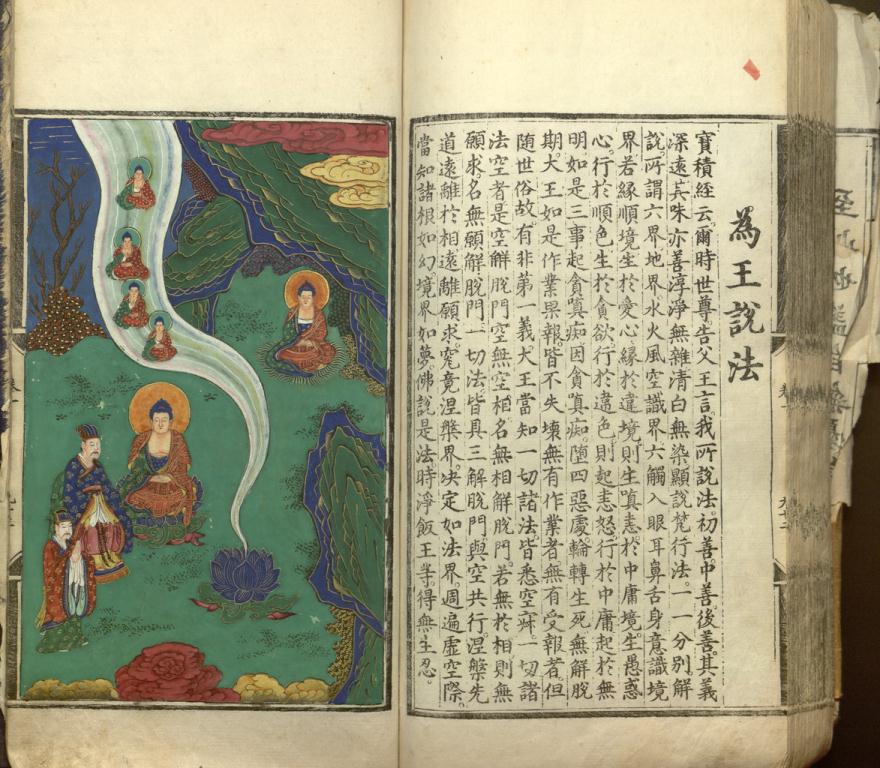 為王說法
寶積經云。爾時世尊告父王言。我所說法。初善。中善。後善。其義
深遠。其味亦善。淳淨無雜。清白無染。顯說梵行法。一一分別解
說。所謂六界。地界。水火風空識界。六觸入。眼耳鼻舌身意識境
界。若緣順境。生於愛心。緣於違境。則生嗔恚。於中庸境。生愚惑
心。行於順色。生於貪欲。行於違色。則起恚怒。行於中庸。起於無
明。如是三事。起貪嗔痴。因貪嗔痴。墮四惡處。輪轉生死。無解脫
期。大王。如是作業果報。皆不失壞。無有作業者。無有受報者。但
隨世俗故有。非第一義。大王當知。一切諸法。皆悉空寂。一切諸
法空者。是空解脫門。空無空相。名無相解脫門。若無於相。則無
願求。名無願解脫門。一切法皆具三解脫門。與空共行。涅槃先
道。遠離於相。遠離願求。究竟涅槃界。決定如法界。周遍虛空際。
當知諸根如幻。境界如夢。佛說是法時。淨飯王等。得無生忍。